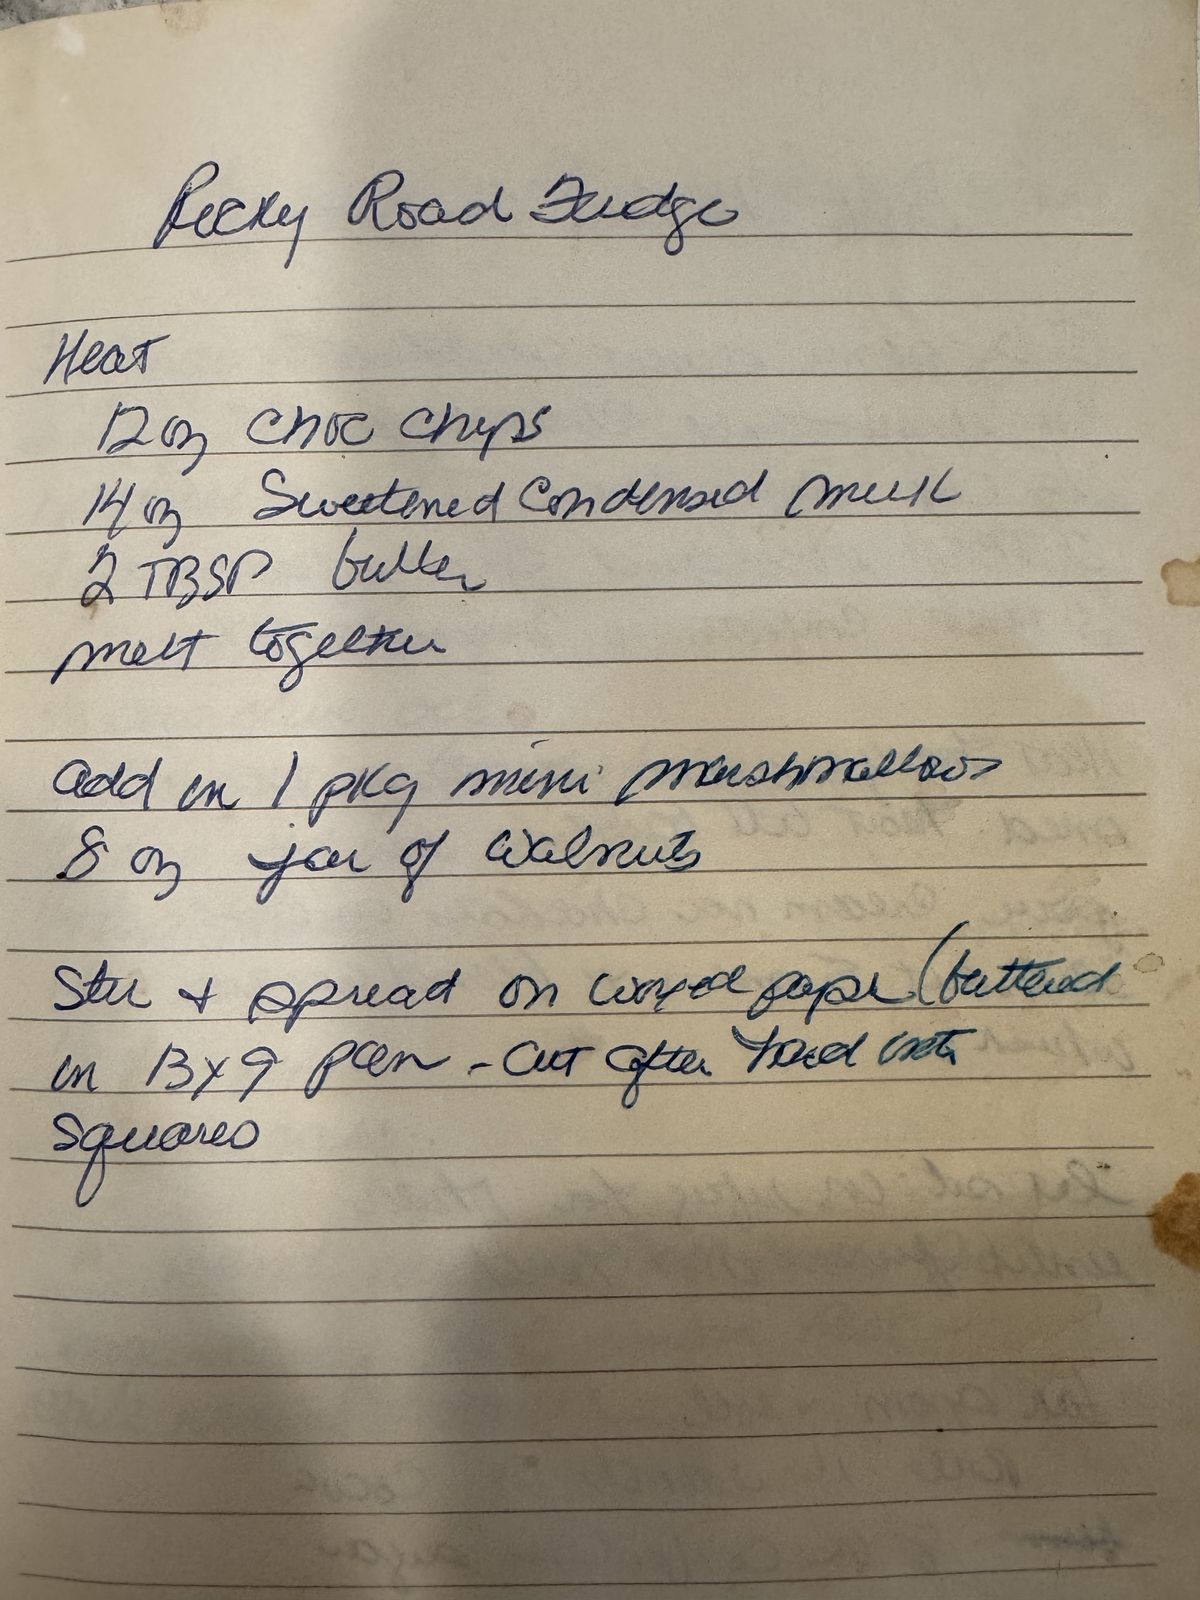 Rocky Road Fudge
Heat
12 oz choc chips
14 oz Sweetened Condensed milk
2 TBSP butter
melt together
add in 1 pkg mini marshmallows
8 oz jar of walnuts
Stir + spread on waxed paper (buttered
in 13x9 pan - cut after hard into
squares